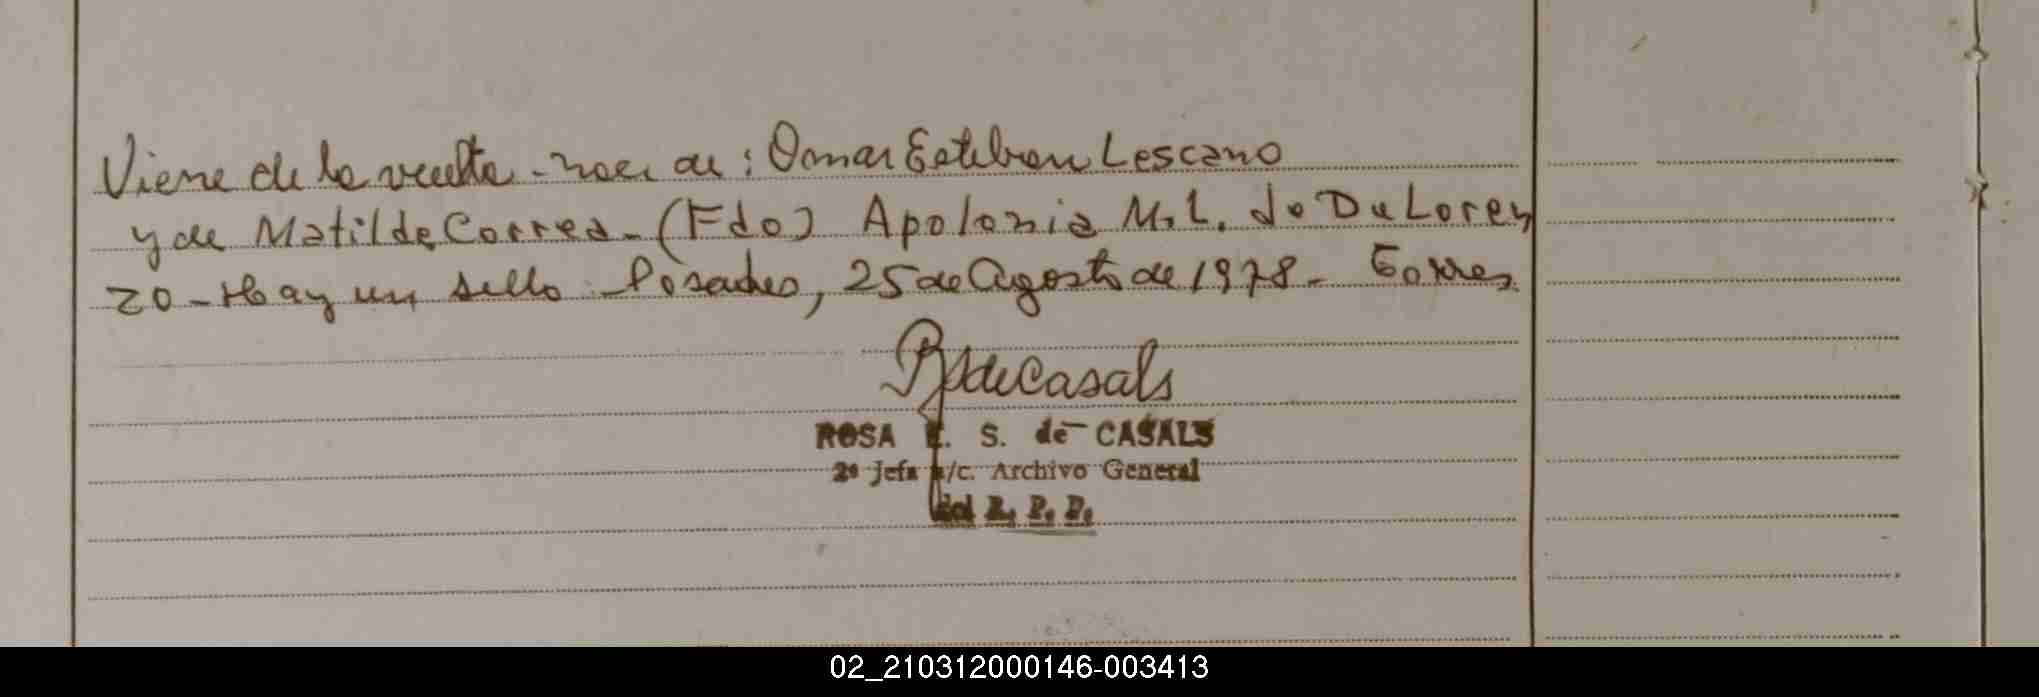 Viene de la vuelta - nac. de: Omar Esteban Lescano
y de Matilde Correa - (Fdo) Apolonia M. L. de Du Loren
zo - Hay un sello - Posadas, 25 de Agosto de 1978 - Torres
RSdeCasals
ROSA E. S. de CASALS
2º Jefa a/c. Archivo General
del R. P. P.
02_210312000146-003413